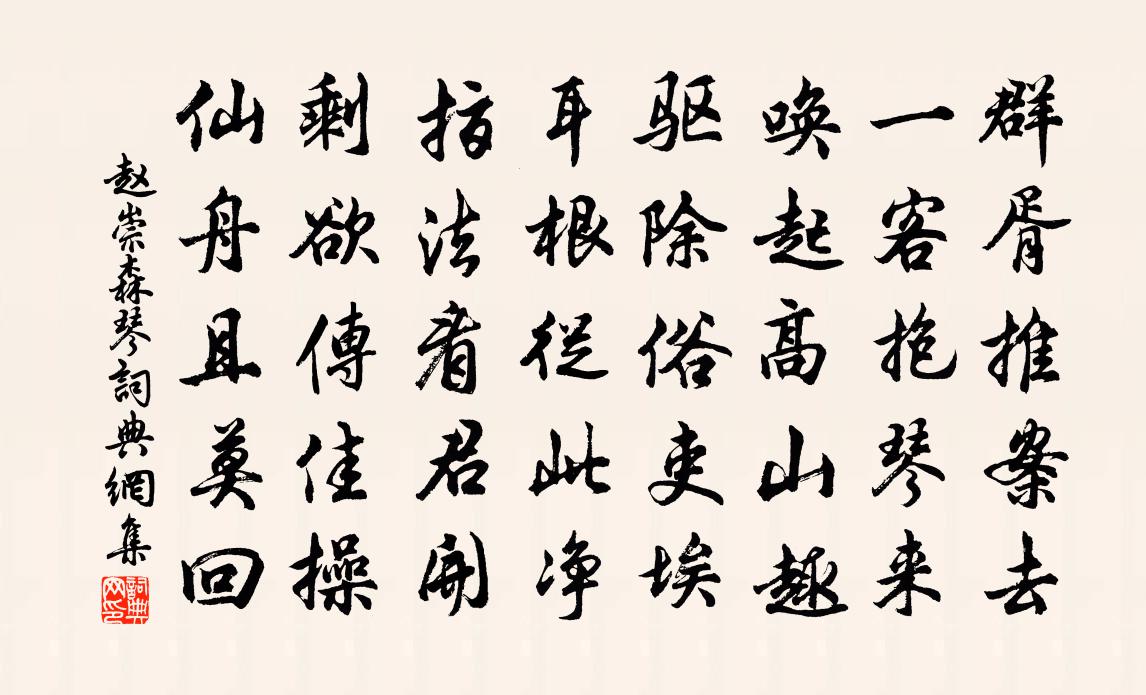 群胥推案去
一客抱琴来
唤起高山趣
驱除俗吏埃
耳根从此净
指法看君开
剩欲傳佳操
仙舟且莫回
赵崇森琴詞典網集
詞典网印